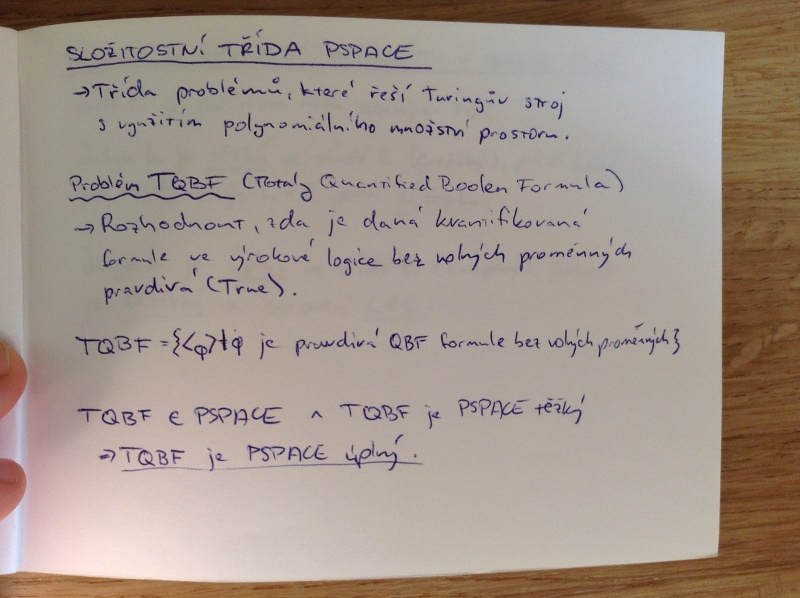 SLOŽITOSTNÍ TŘÍDA PSPACE
→ Třída problémů, které řeší Turingův stroj
s využitím polynomiálního množství prostoru.
Problém TQBF (Totaly Quantified Boolen Formula)
→ Rozhodnout, zda je daná kvantifikovaná
formule ve výrokové logice bez volných proměnných
pravdivá (True).
TQBF = {<φ> | φ je pravdivá QBF formule bez volných proměnných}
TQBF ∈ PSPACE ∧ TQBF je PSPACE těžký
⇒ TQBF je PSPACE úplný.